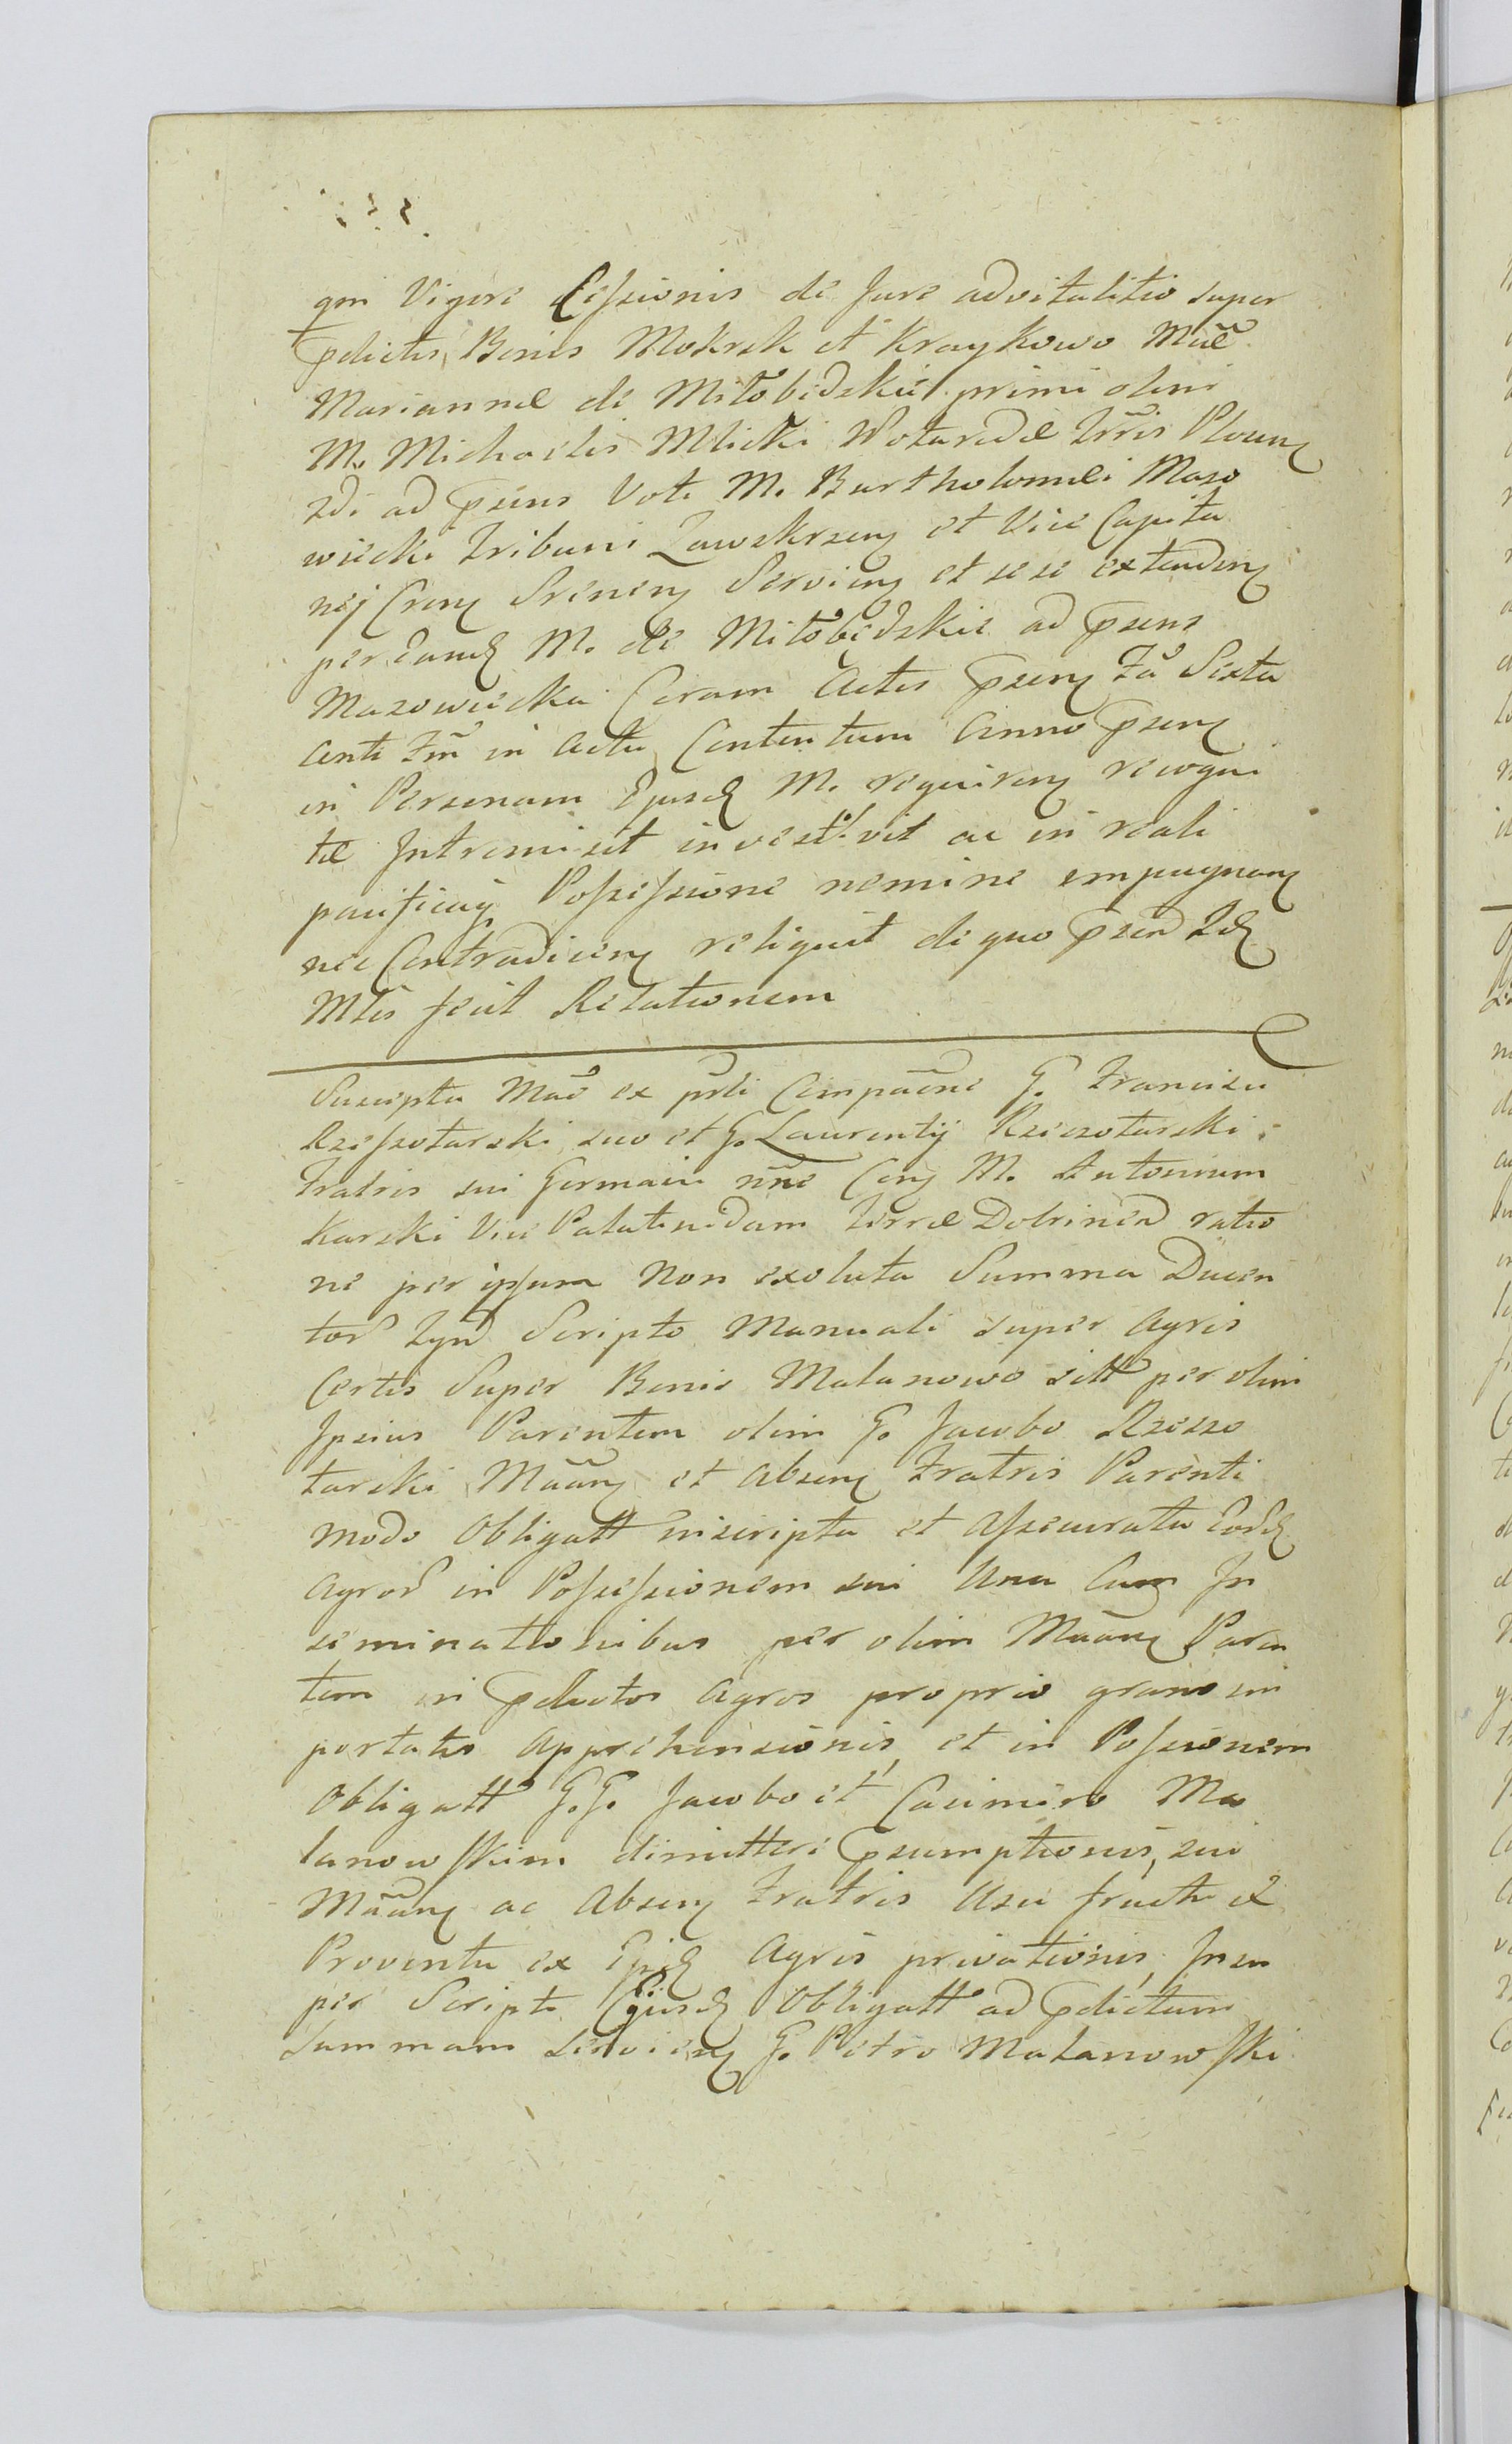 qm Vigore Cessionis de Jure advitalitio super
pdictis Bonis Mokrsk et Kraykowo Mae
Mariannæ de Miłobędzkie primi olim
M. Michaelis Mlicki Notaridæ Trris Plocen
2di ad psens Voti M. Bartholomæi Mazo
wiecki Tribuni Zawskrzen et Vice Capita
nej Cren Srenen Servien et sese extenden
per Eand M. de Miłobędzkie ad psens
Mazowiecka Coram Actis psen Fa Sexta
ante Fm in Actu Contentum Anno psen
in Personam Ejusd M. requiren recogni
tæ Intromisit investivit ac in reali
pacificaq Possessione nemine impugnan
nec Contradicen reliquit de quo psend Id
Mtis fecit Relationem
Suscipta Mae ex prli Compacne G. Francisci
Rzeszotarski suo et G. Laurentij Rzeszotarski
Fratris sui Germani nne Con M. Antonium
Karski Vice Palatinidam Terræ Dobrinen ratio
ne per ipsum Non exoluta Summa Ducen
tor Tyn Scripto Manuali super Agris
Certis Super Bonis Malanowo sitt per olim
Ipsius Parentem olim G. Jacobo Rzeszo
tarski Maan et Absen Fratris Parenti
modo Obligatt inscripta et Assecurata Eord
Agror in Possessionem sui Una Cum In
seminationibus per olim Maan Paren
tem in pdictos Agros proprio grano im
portatis Apprehensionis, et in Possionem
Obligatt G.G. Jacobo et Casimiro Ma
lanowskim dimitteri psumptionis, sui
Maan ac Absen Fratris Usu fructu et
Proventu ex Ipsis Agris privationis, Insu
per Scripti Ejusd Obligatt ad pdictum
Summam servien G. Petro Malanowski